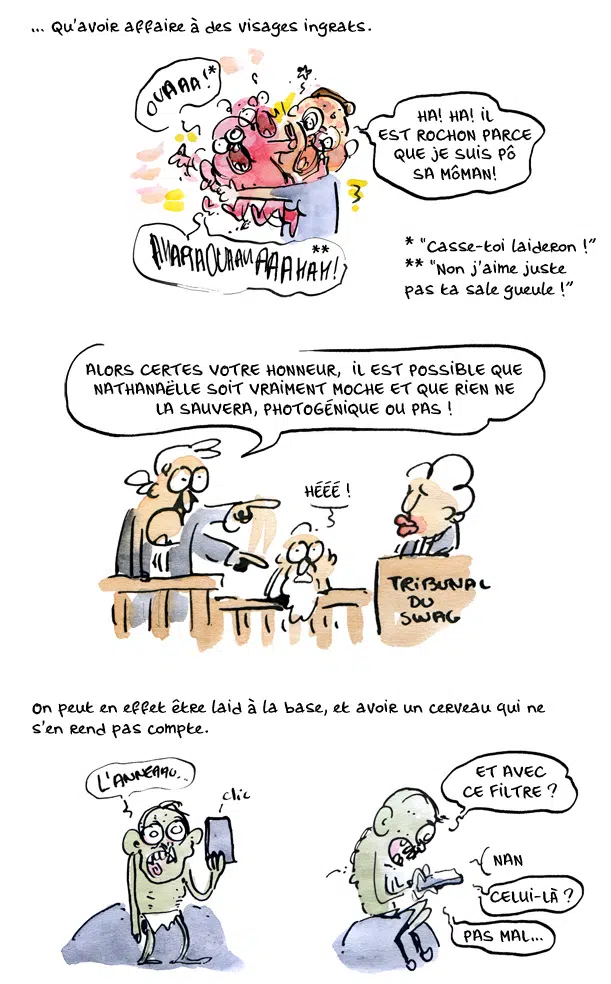 ... Qu'avoir affaire à des visages ingrats.
OUAAA!*
HA! HA! iL
EST ROCHON PARCE
QUE JE SUIS PÔ
SA MÔMAN!
AHAAAOUAAAAAAAHAH!**
* "Casse-toi laideron !"
** "Non j'aime juste
pas ta sale gueule !"
ALORS CERTES VOTRE HONNEUR, iL EST POSSIBLE QUE
NATHANAËLLE SOIT VRAIMENT MOCHE ET QUE RIEN NE
LA SAUVERA, PHOTOGÉNIQUE OU PAS !
HÉÉÉ !
TRiBUNAL
DU
SWAG
On peut en effet être laid à la base, et avoir un cerveau qui ne
s'en rend pas compte.
L'ANNEAU..
clic
ET AVEC
CE FILTRE ?
NAN
CELUI-LÀ ?
PAS MAL...